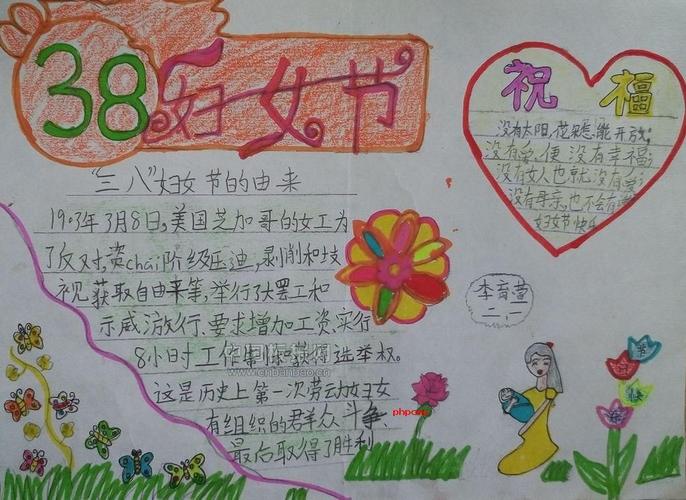 38妇女节
"三八"妇女节的由来
1903年3月8日,美国芝加哥的女工为
了反对,资chǎi阶级压迪,剥削和技
视获取自由来等,举行了大罢工和
示威游行、要求增加工资,实行
8小时工作制和获得选举权。
www.cnbanbao.cn
这是历史上第一次劳动妇女
有组织的君羊众斗争,
最后取得了胜利
祝福
没有太阳,花朵 能开放;
没有爱,便没有幸福;
没有女人也就没有爱;
没有母亲,也不会有
妇女节快乐
李育萱
二.一
快